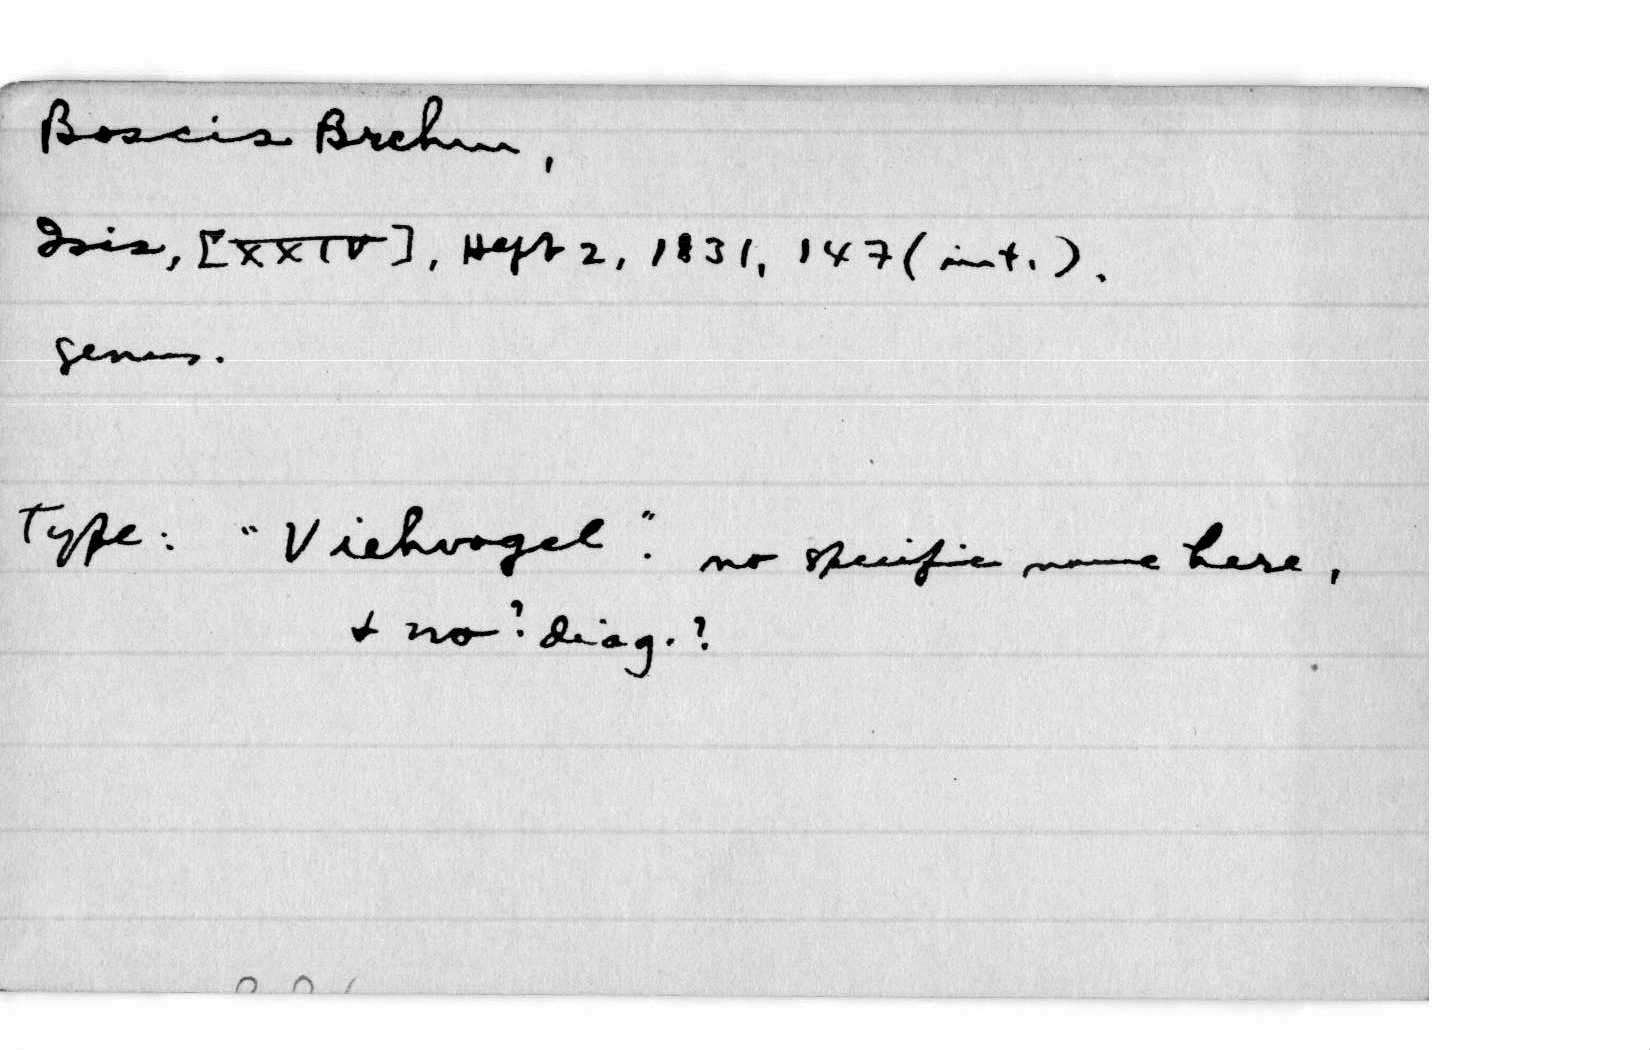 Boscis Brehm,
Isis, [XXIV], Heft 2, 1831, 147 (int.).
genus.
Type: "Viehvogel". no specific name here,
+ no? diag.?